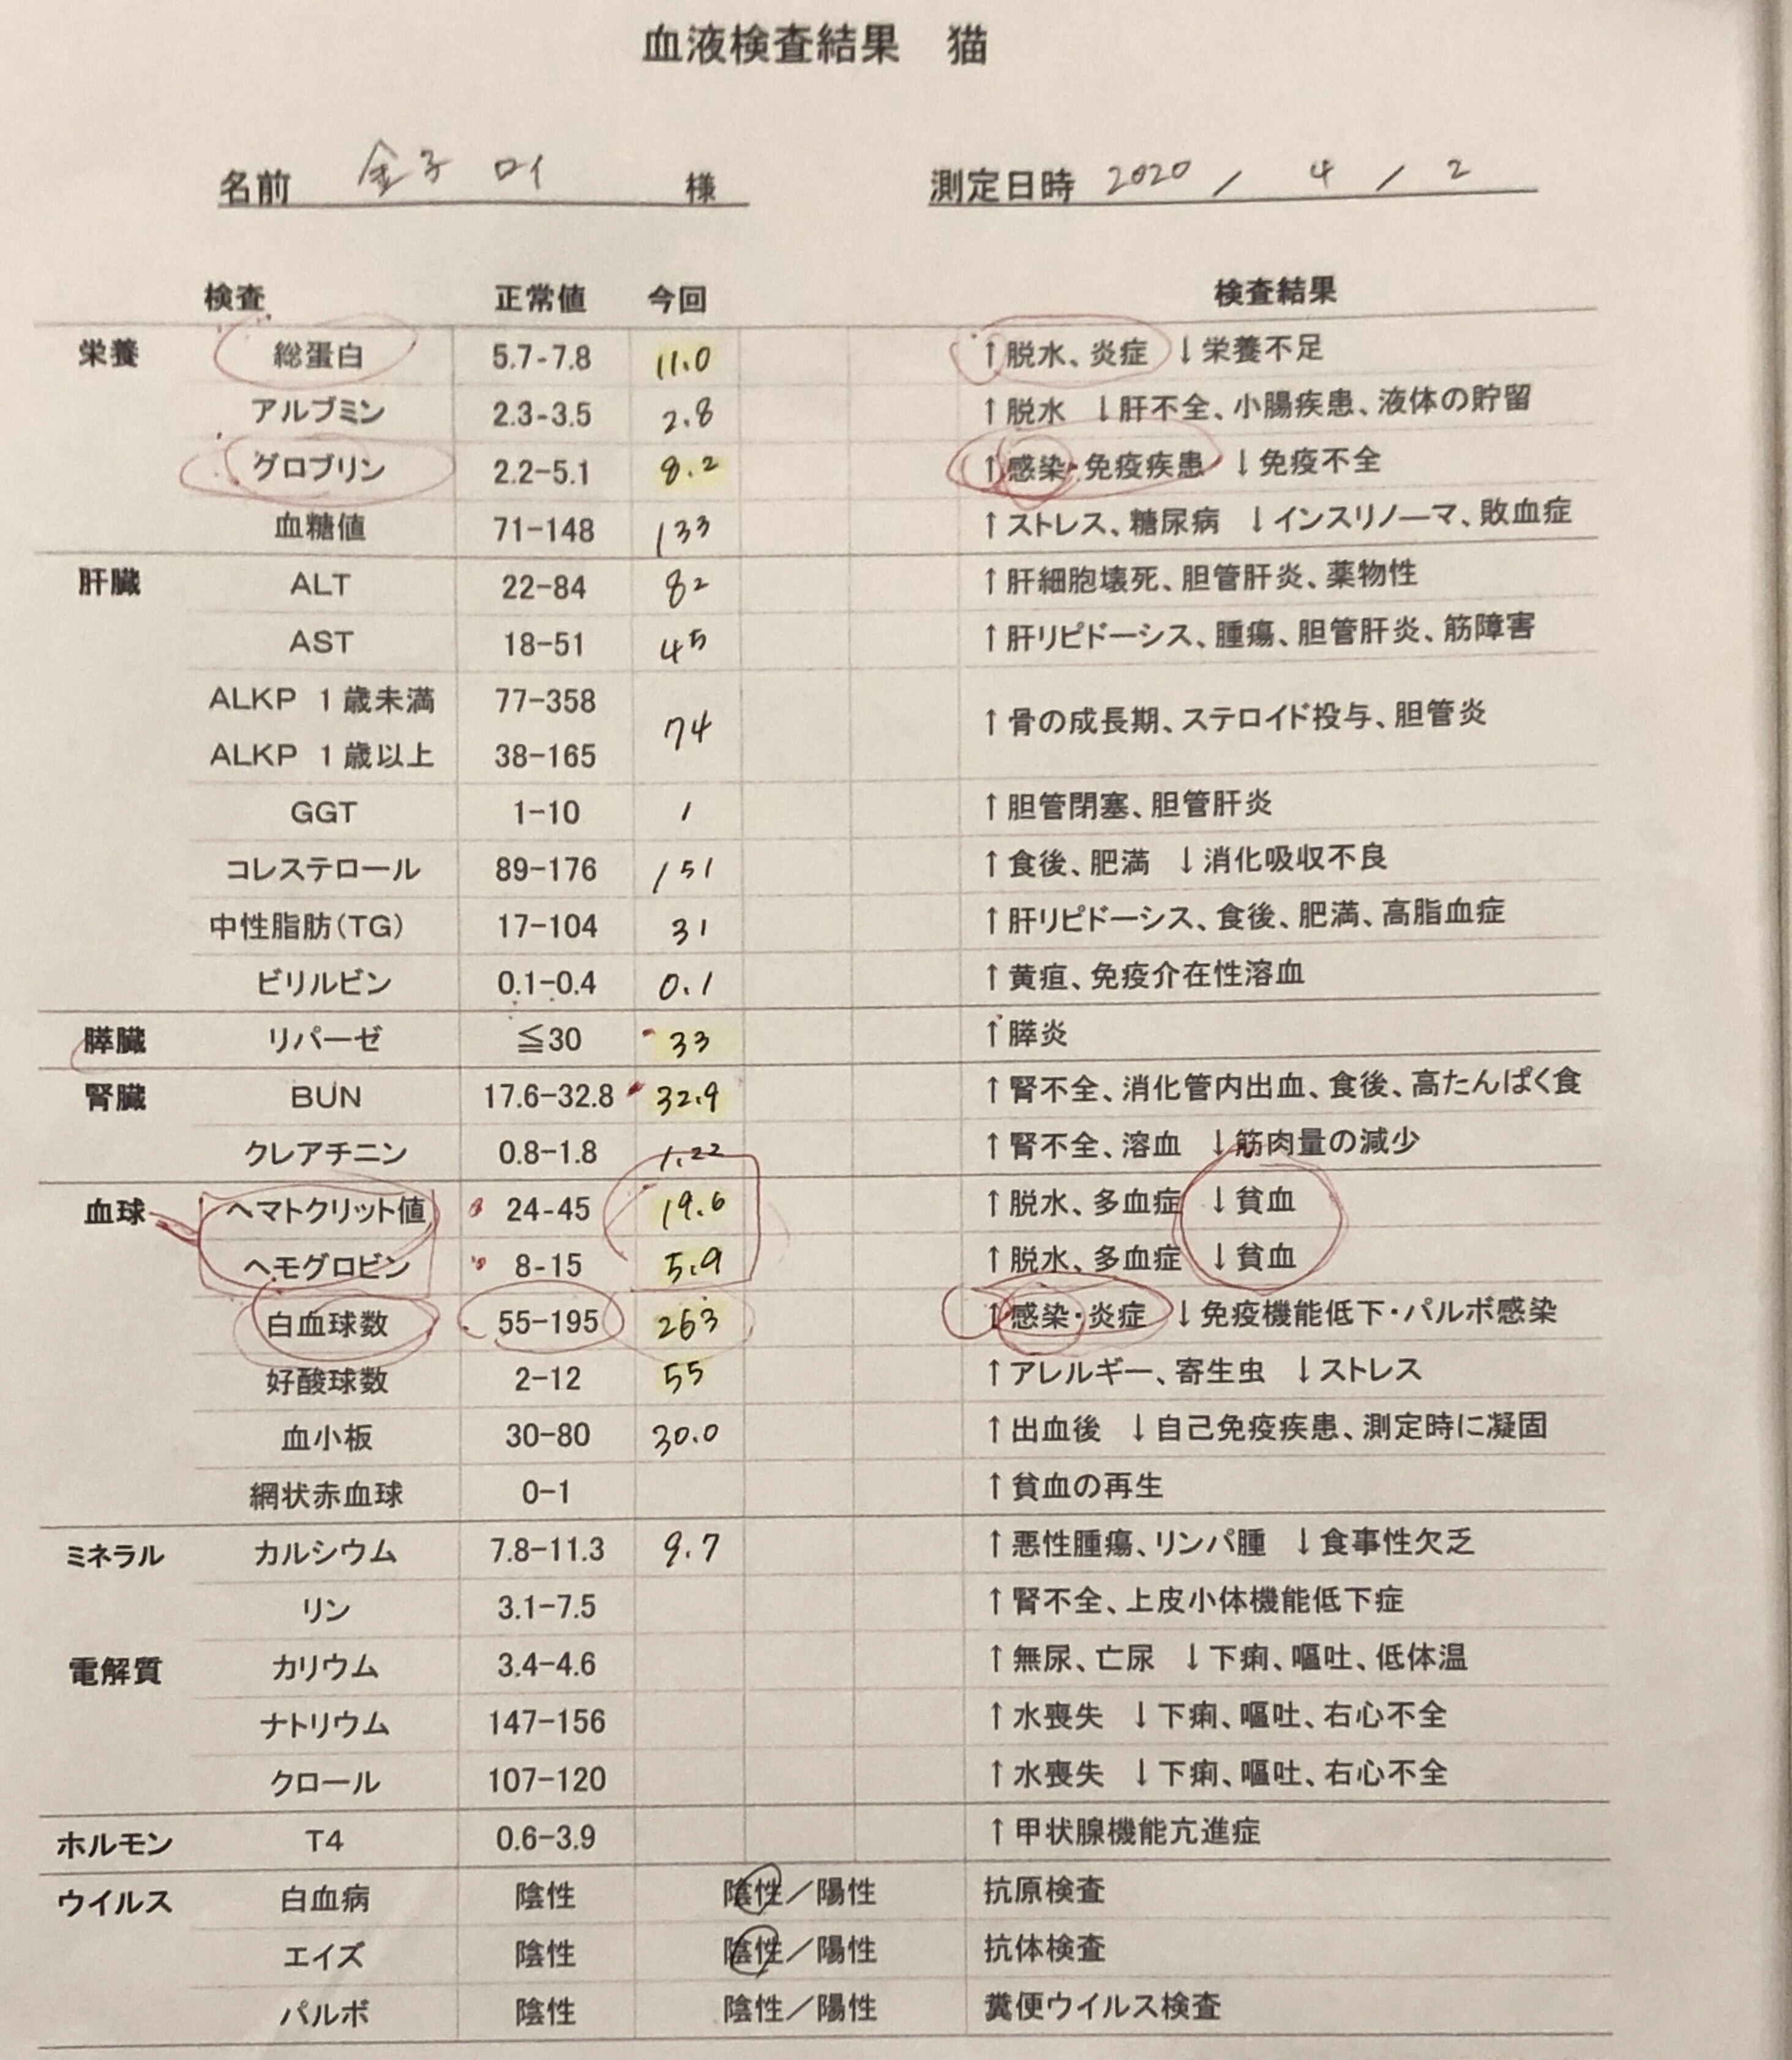 血液検査結果 猫
名前 金子 ロイ 様 測定日時 2020 / 4 / 2
検査 正常値 今回 検査結果
栄養 総蛋白 5.7-7.8 11.0 ↑脱水、炎症 ↓栄養不足
アルブミン 2.3-3.5 2.8 ↑脱水 ↓肝不全、小腸疾患、液体の貯留
グロブリン 2.2-5.1 8.2 ↑感染・免疫疾患 ↓免疫不全
血糖値 71-148 133 ↑ストレス、糖尿病 ↓インスリノーマ、敗血症
肝臓 ALT 22-84 82 ↑肝細胞壊死、胆管肝炎、薬物性
AST 18-51 45 ↑肝リピドーシス、腫瘍、胆管肝炎、筋障害
ALKP 1歳未満 77-358
74 ↑骨の成長期、ステロイド投与、胆管炎
ALKP 1歳以上 38-165
GGT 1-10 1 ↑胆管閉塞、胆管肝炎
コレステロール 89-176 151 ↑食後、肥満 ↓消化吸収不良
中性脂肪(TG) 17-104 31 ↑肝リピドーシス、食後、肥満、高脂血症
ビリルビン 0.1-0.4 0.1 ↑黄疸、免疫介在性溶血
膵臓 リパーゼ ≦30 33 ↑膵炎
腎臓 BUN 17.6-32.8 32.9 ↑腎不全、消化管内出血、食後、高たんぱく食
クレアチニン 0.8-1.8 1.22 ↑腎不全、溶血 ↓筋肉量の減少
血球 ヘマトクリット値 24-45 19.6 ↑脱水、多血症 ↓貧血
ヘモグロビン 8-15 5.9 ↑脱水、多血症 ↓貧血
白血球数 55-195 263 ↑感染・炎症 ↓免疫機能低下・パルボ感染
好酸球数 2-12 55 ↑アレルギー、寄生虫 ↓ストレス
血小板 30-80 30.0 ↑出血後 ↓自己免疫疾患、測定時に凝固
網状赤血球 0-1 ↑貧血の再生
ミネラル カルシウム 7.8-11.3 9.7 ↑悪性腫瘍、リンパ腫 ↓食事性欠乏
リン 3.1-7.5 ↑腎不全、上皮小体機能低下症
電解質 カリウム 3.4-4.6 ↑無尿、亡尿 ↓下痢、嘔吐、低体温
ナトリウム 147-156 ↑水喪失 ↓下痢、嘔吐、右心不全
クロール 107-120 ↑水喪失 ↓下痢、嘔吐、右心不全
ホルモン T4 0.6-3.9 ↑甲状腺機能亢進症
ウイルス 白血病 陰性 陰性/陽性 抗原検査
エイズ 陰性 陰性/陽性 抗体検査
パルボ 陰性 陰性/陽性 糞便ウイルス検査